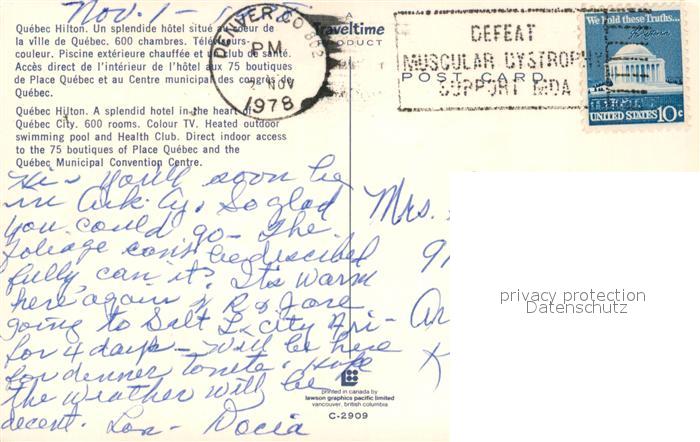 Nov. 1 -
Québec Hilton. Un splendide hôtel situé au coeur de
la ville de Québec. 600 chambres. Téléviseurs-
couleur. Piscine extérieure chauffée et un club de santé.
Accès direct de l'intérieur de l'hôtel aux 75 boutiques
de Place Québec et au Centre municipal des congrès de
Québec.
Québec Hilton. A splendid hotel in the heart of
Québec City. 600 rooms. Colour TV. Heated outdoor
swimming pool and Health Club. Direct indoor access
to the 75 boutiques of Place Québec and the
Québec Municipal Convention Centre.
A
Traveltime
PRODUCT
DENVER, CO 802
PM
2 NOV
1978
DEFEAT
MUSCULAR DYSTROPHY
SUPPORT MDA
POST CARD
We hold these Truths...
UNITED STATES 10¢
Hi - you'll soon be
in Ark. Cy. So glad
you could go - The
foliage can't be discribed
fully can it? It's warm
here again R & J are
going to Salt L. City Fri -
for 4 days - Will be here
for dinner tonite. Hope
the weather will be
decent. Lov - Docia
Mrs.
91
Ar
K
privacy protection
Datenschutz
printed in canada by
lawson graphics pacific limited
vancouver, british columbia
C-2909